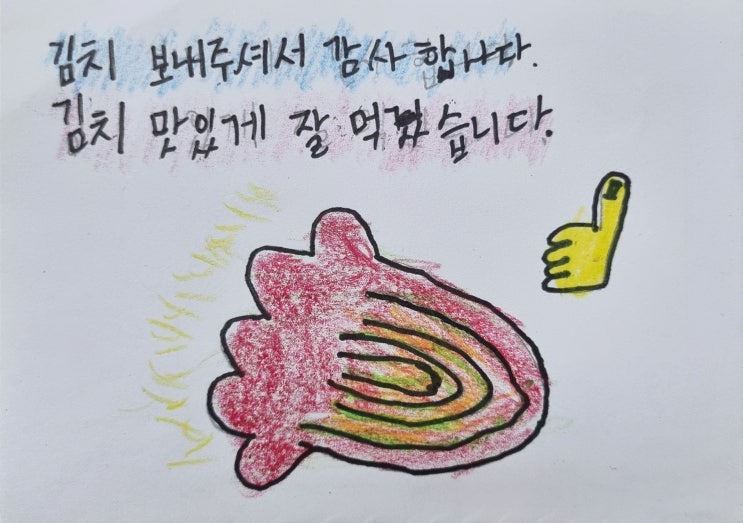 김치 보내주셔서 감사합니다.
김치 맛있게 잘 먹겠습니다.